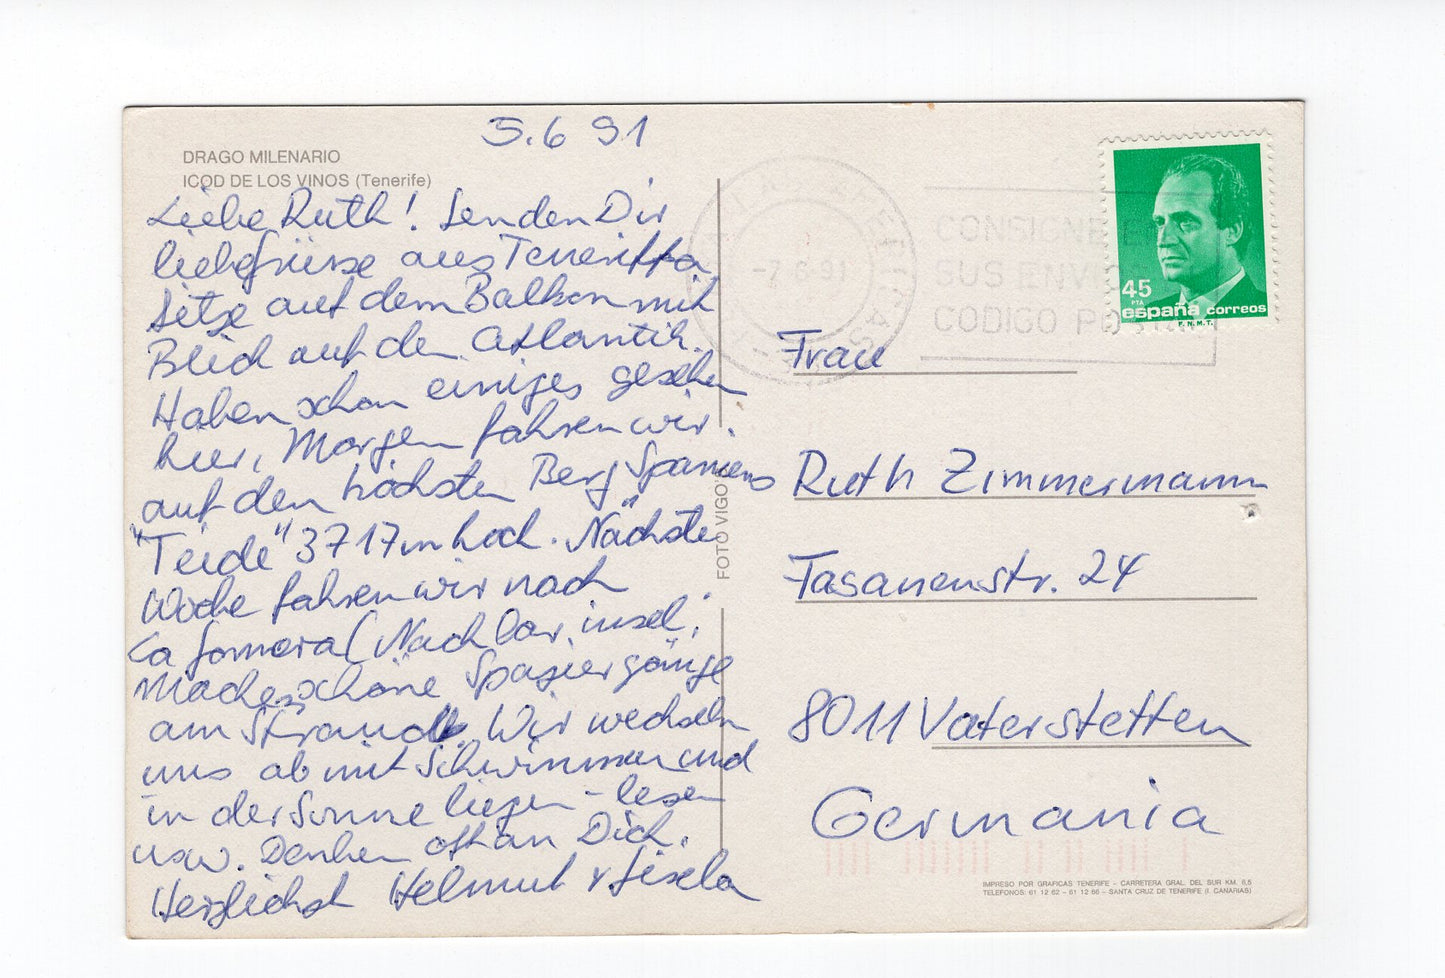 5.6 91
DRAGO MILENARIO
ICOD DE LOS VINOS (Tenerife)
Liebe Ruth! Senden Dir
liebe Grüsse aus Teneriffa
Sitze auf dem Balkon mit
Blick auf den Atlantik.
Haben schon einiges gesehen
hier, Morgen fahren wir
auf den höchsten Berg Spaniens
"Teide" 3717m hoch. Nächste
Woche fahren wir nach
La Gomera (Nachbarinsel,
Mache schöne Spaziergänge
am Strand. Wir wechseln
uns ab mit Schwimmen und
in der Sonne liegen - lesen
usw. Denken oft an Dich.
Herzlichst Helmut + Gisela
FOTO VIGO
-7.6.91
CONSIGNE EN
SUS ENVIOS
CODIGO POSTAL
45
PTA
españa correos
F.N.M.T.
Frau
Ruth Zimmermann
Fasanenstr. 24
8011 Vaterstetten
Germania
IMPRESO POR GRAFICAS TENERIFE - CARRETERA GRAL. DEL SUR KM. 6,5
TELEFONOS: 61 12 62 - 61 12 66 - SANTA CRUZ DE TENERIFE (I. CANARIAS)